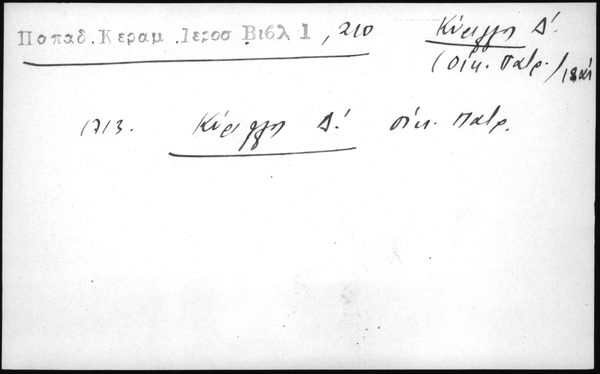 Παπαδ. Κεραμ. Ιεροσ Βιβλ 1, 210
Κύριλλος Δ΄.
(Οίκ. Πατρ. / 18 αί
1713. Κύριλλος Δ΄. οίκ. Πατρ.